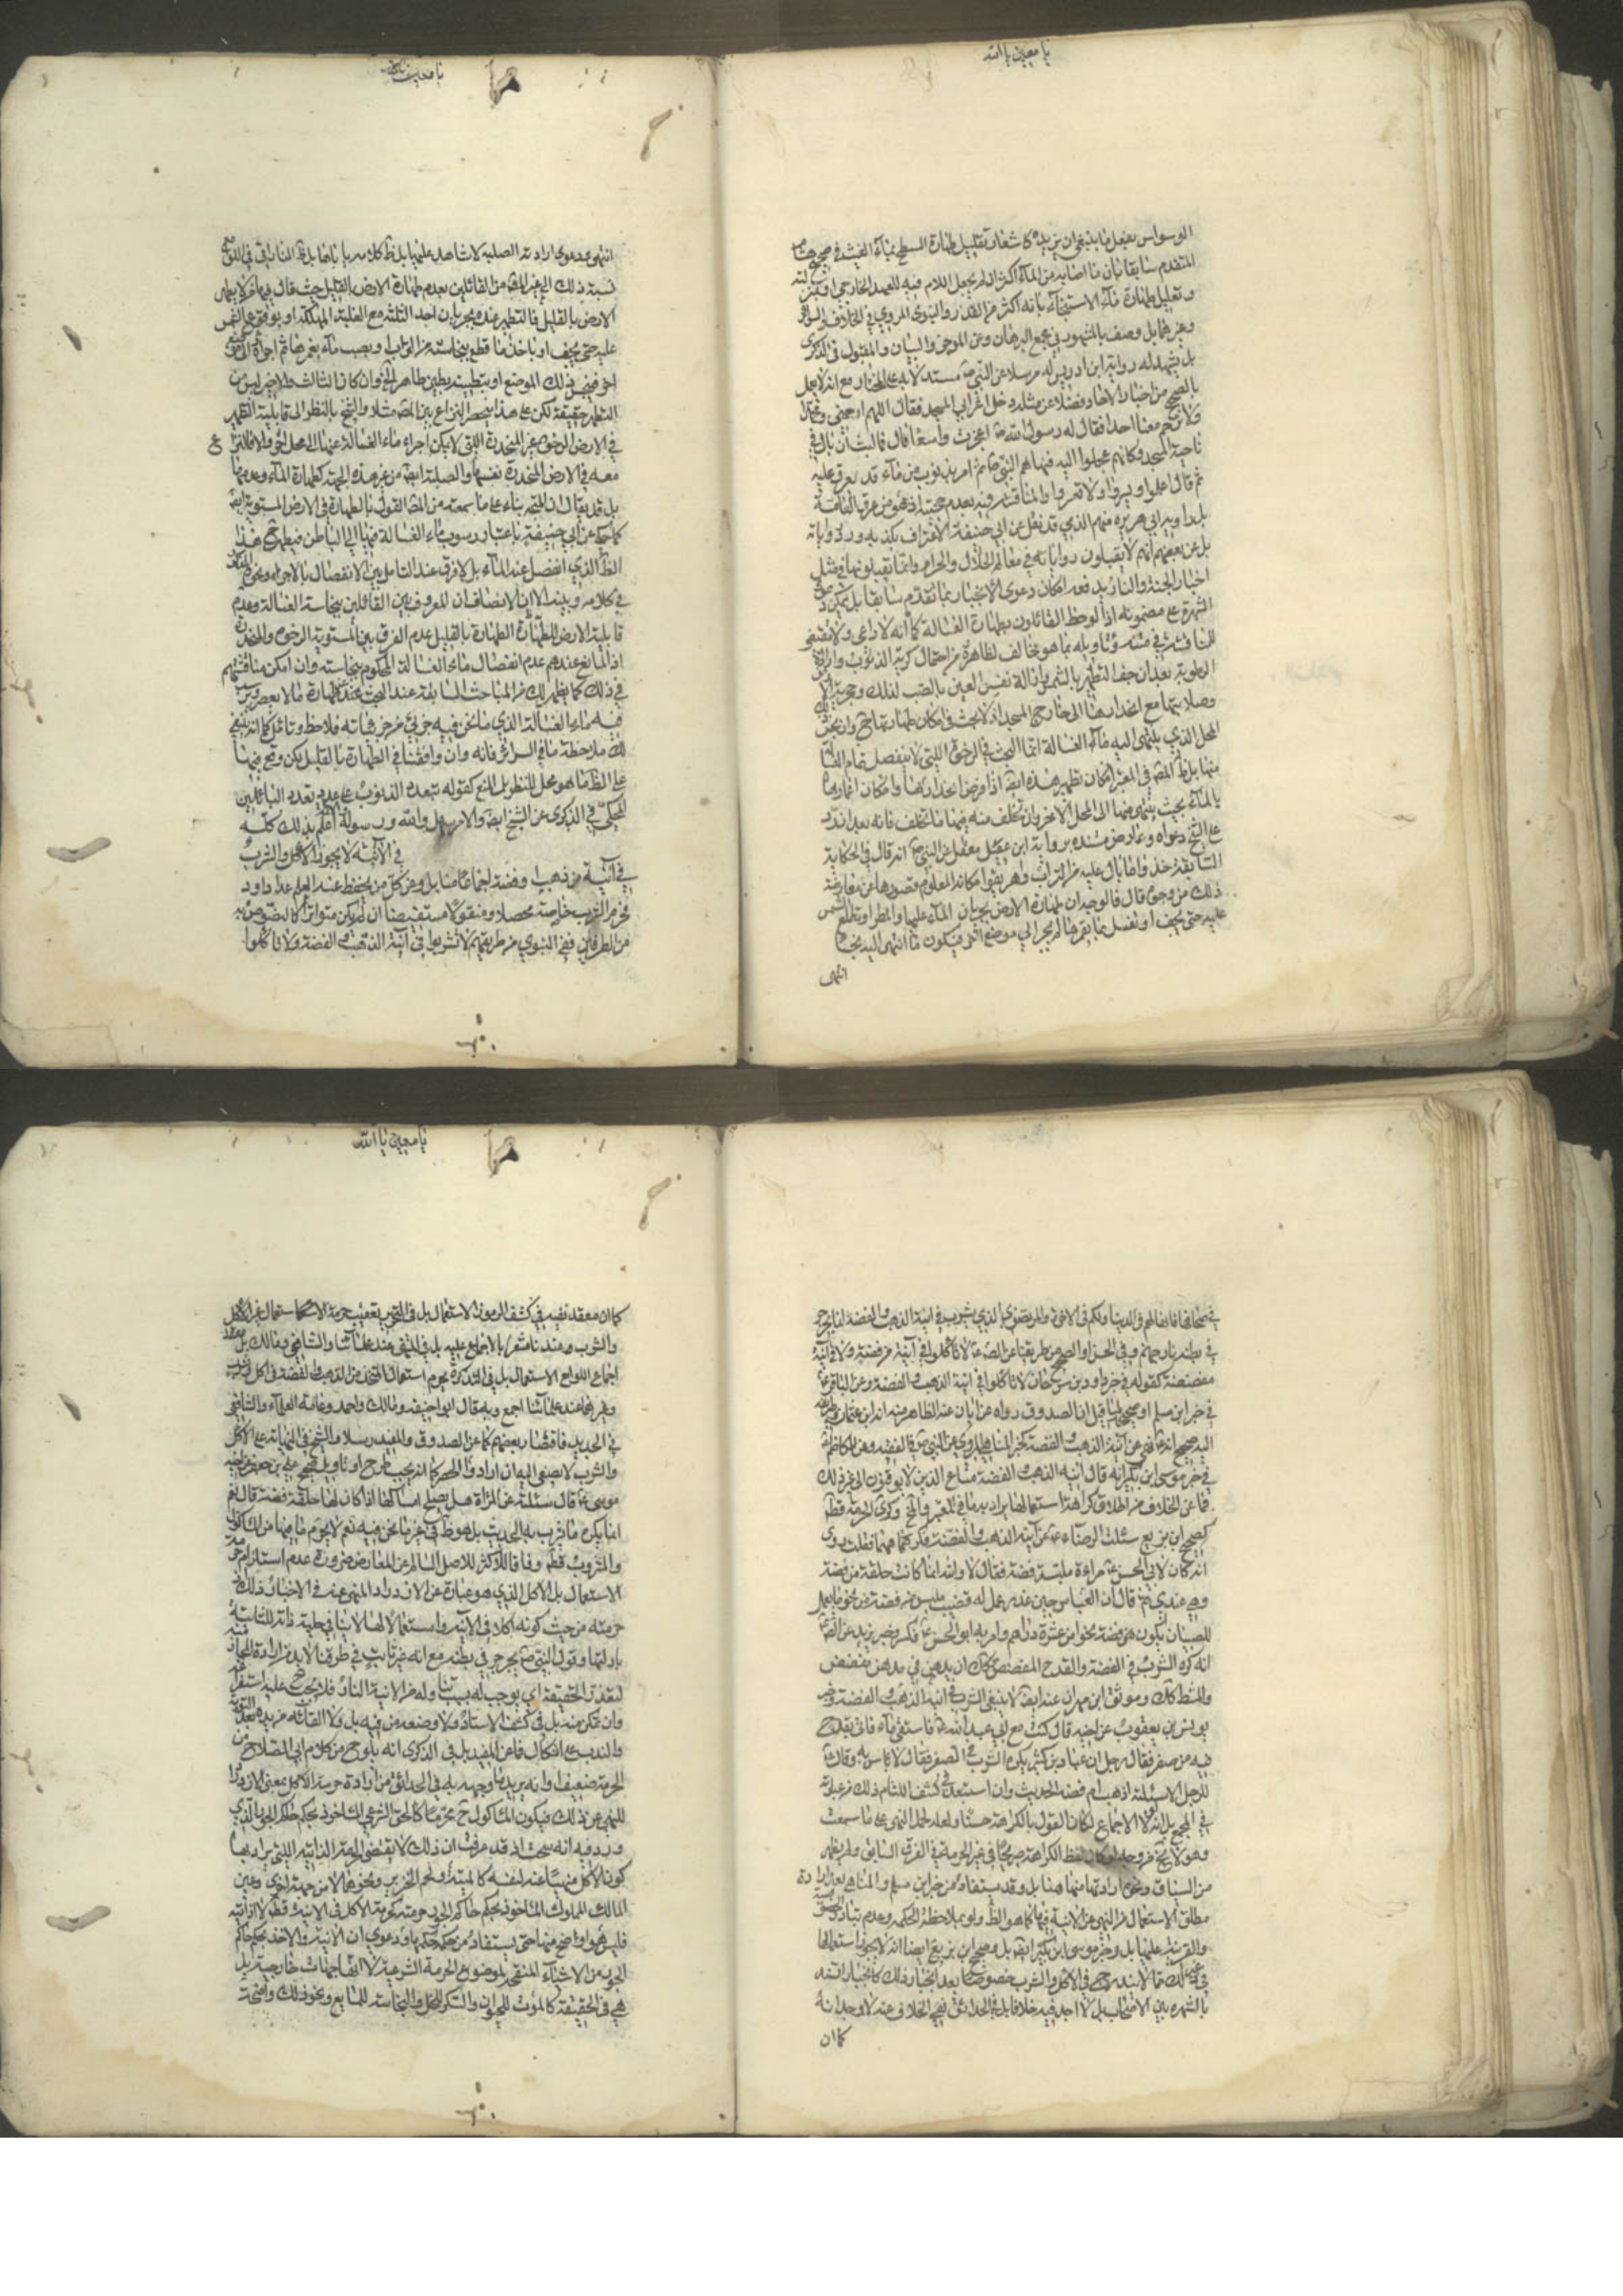 يا معين يا الله
الوسواس بفعل ما ينبغي ان يزيده كاشعار تعليل طهارة السطح بماء الغيث في صحيح هشام
المتقدم سابقا بان ما اصابه من الماء اكثر ان لم يجعل اللام فيه للعهد الخارجي
وتعليل طهارة ماء الاستنجاء بانه اكثر من القذر والنبوي المروي في الخلاف والسرائر
وغيرهما بل وصف بالمشهور في مجمع البرهان وعن الموجز والبيان والمقبول في الذكرى
بل يشهد له رواية ابن ادريس له مرسلا عن النبي ص مستدلا به على المختار مع انه لا يعمل
بالصحيح من اخبار الاحاد فضلا عن مثله دخل اعرابي المسجد فقال اللهم ارحمني ومحمدا
ولا ترحم معنا احدا فقال له رسول الله ص اعجزت واسعا قال فما لبث ان بال في
ناحية المسجد فكانهم عجلوا اليه فنهاهم النبي ص ثم امر بذنوب من ماء قد يهرق عليه
ثم قال اعلموا ويسروا ولا تعسروا والمناقشة فيه بعدم حجيته اذ هو من طرق العامة
بل راويه ابي هريرة منهم الذي قد نقل عن ابي حنيفة الاعتراف بكذبه ورد رواياته
بل عن بعضهم انهم لا يقبلون رواياته في معالم الحلال والحرام وانما يقبلونها في مثل
اخبار الجنة والنار يدفعها امكان دعوى الانجبار بما تقدم سابقا بل يمكن دعوى
الشهرة على مضمونه اذا لوحظ القائلون بطهارة الغسالة كما انه لا داعي ولا مقتضي
للمناقشة في متنه وتاويله بما هو مخالف لظاهره من احتمال كرية الذنوب وارادة
الرطوبة بعد ان جف التطهر بالشمس وازالة نفس العين بالصب لذلك وحجرية الارض
وصلابتها مع انحدارها الى خارج المسجد اذ لا بحث في امكان طهارتها ح وان نجس
المحل الذي ينتهي اليه ماء الغسالة انما البحث في الرخوة التي لا ينفصل تمام الغسالة
منها بل ظ المصنف في المعتبر امكان تطهير هذه ايضا اذا فرض انحدارها وامكان اغمارها
بالماء بحيث ينتهي منها الى المحل الاخر وان تخلف منه فيها ما تخلف فانه بعد ان رد
على الشيخ دعواه وعارض مستنده برواية ابن معقل عن النبي ص انه قال في الحكاية
السابقة خذوا ما بال عليه من التراب واهريقوا مكانه المعلوم قصورها عن معارضة
ذلك من وجوه قال فالوجه ان طهارة الارض بجريان الماء عليها والمطر او تطلع الشمس
عليه حتى يجف او تغسل بما يغمرها ثم يجري الى موضع اخر فيكون ما انتهى اليه نجسا
انتهى
يا معين
انتهى ودعوى ارادته الصلبة لا شاهد عليها بل ظ كلامه ياباها بل ظ المناقش في اللوامع
نسبة ذلك الى غير المصنف من القائلين بعدم طهارة الارض بالقليل حيث قال
الارض بالقليل فالتطهر عنده بجريان احد الثلثة مع الغلبة المهلكة او بوقوع الشمس
عليه حتى يجف او باخذ ما قطع بنجاسته من التراب او بصب ماء يغمرها ثم اجرائه الى موضع
اخر فينجس ذلك الموضع او بتطيينه بطين طاهر الخ وان كان الثالث والاخير ليس من
التطهر حقيقة لكن على هذا ينحصر النزاع بين المصنف مثلا والشيخ بالنظر الى قابلية التطهير
في الارض الرخوة غير المنحدرة التي لا يمكن اجراء ماء الغسالة عنها الى محل اخر والا فالنزاع
معه في الارض المنحدرة نفسها والصلبة ايضا من غير هذه الجهة كطهارة الماء وعدمها
بل قد يقال ان المتجه بناء على ما سمعته من المصنف القول بالطهارة في الارض المستوية ايضا
كما حكي عن ابي حنيفة باعتبار رسوب ماء الغسالة فيها الى الباطن فيطهر ح هذا
الظ الذي انفصل عنه الماء بل لا فرق عند التامل بين الانفصال بالاجراء ونحوه
في كلامه وبينه الا ان الانصاف ان المعروف بين القائلين بنجاسة الغسالة وعدم
قابلية الارض للطهارة بالقليل عدم الفرق بين المستوية الرخوة والمنحدرة
اذ المانع عندهم عدم انفصال ماء الغسالة المحكوم بنجاسته وان امكن مناقشتهم
في ذلك كما يظهر لك من المباحث السابقة عند البحث عن طهارة ما لا يعصر ويرسب
فيه ماء الغسالة الذي ما نحن فيه جزئي من جزئياته فلاحظ وتامل كما انه ينبغي
لك ملاحظة ما في السرائر فانه وان وافقنا في الطهارة بالقليل لكن وقع فيها
على الظ ما هو محل للنظر بل المنع كقوله بتعدد الذنوب على عدم تعدد البائلين
المحكي في الذكرى عن الشيخ ايضا والامر سهل والله ورسوله اعلم بذلك كله
في الآنية لا يجوز الاكل والشرب
في آنية من ذهب او فضة اجماعا منا بل وعن كل من يحفظ عنه العلم عدا داود
فحرم الشرب خاصة محصلا ومنقولا مستفيضا ان لم يكن متواترا كالنصوص به
من الطرفين ففي النبوي من طريقهم لا تشربوا في آنية الذهب والفضة ولا تاكلوا
في صحافها فانها لهم في الدنيا ولكم في الاخرة والمرتضوي الذي يشرب في انية الذهب والفضة انما يجرجر
في بطنه نار جهنم وفي الحسن او الصحيح من طريقنا عن الصادق ع لا تاكلوا في آنية من فضة ولا في آنية
مفضضة كقوله في خبر داود بن سرحان لا تاكلوا في انية الذهب والفضة وعن الباقر ع
في خبر ابن مسلم او صحيحه
اليه صحيح انه ع نهى عن آنية الذهب والفضة كخبر المناهي المروي عن النبي ص في الفقيه وعن الكاظم ع
في خبر موسى ابن بكر انه قال آنية الذهب والفضة متاع الذين لا يوقنون الى غير ذلك
فما عن الخلاف من اطلاق كراهة استعمالها يراد به ما في المعتبر وكرى الحرمة قطعا
كصحيح ابن بزيع سئلت الرضا ع عن آنية الذهب والفضة فكرههما فقلت روى
انه كان لابي الحسن ع مراءة ملبسة فضة فقال لا والله انما كانت حلقة من فضة
وهي عندي ثم قال ان العباس حين عذر عمل له قضيب ملبس من فضة من نحو ما يعمل
للصبيان تكون من فضة نحوا من عشرة دراهم وامر به ابو الحسن ع فكسر وخبر بريد عن الصادق ع
انه كره الشرب في الفضة والقدح المفضض وكذلك ان يدهن في مدهن مفضض
والمشط كذلك وموثق ابن مهران عنه ايضا لا ينبغي الشرب في انية الذهب والفضة وخبر
يونس بن يعقوب عن اخيه قال كنت مع ابي عبد الله ع فاستسقى ماء فاتى بقدح
فيه من صفر فقال رجل ان عباد بن كثير يكره الشرب في الصفر فقال لا باس به وقال ع
للرجل الا سئلته اذهب ام فضة الحديث وان استبعد في كشف اللثام ذلك
في المجمع بل انه لولا الاجماع لكان القول بالكراهة حسنا ولعله لحمل النهي على ما سمعت
وهو لا يخ من وجه لو كان لفظ الكراهة صريحا في غير الحرمة في العرف السابق ولم يظهر
من السياق ونحوه ارادتها منها هنا بل وقد يستفاد من خبر ابن مسلم والمناهي بعد ارادة
مطلق الاستعمال من النهي عن الآنية فيها كما هو الظ ولو بملاحظة الحكمة وعدم تبادر الخصوصية
والقرينة عليها بل وخبر موسى ابن بكر ايضا بل وصحيح ابن بزيع ايضا انه لا يجوز استعمالها
في غير ذلك مما لا يندرج في الاكل والشرب خصوصا بعد انجبار ذلك كانجبار السند
بالشهرة بين الاصحاب بل لا اجد فيه خلافا بل في الحدائق نفي الخلاف عنه لا وجدانه
كما ان
يا معين يا الله
كما ان معقد نفيه في كشف الرموز الاستعمال بل في التحرير تعقيب حرمة
والشرب وعندنا مشعرا بالاجماع عليه بل في المنتهى عند علمائنا والشافعي ومالك بل معقد
اجماع اللوامع الاستعمال بل في التذكرة يحرم استعمال المتخذ من الذهب والفضة في اكل وشرب
وغيرهما عند علمائنا اجمع وبه قال ابو حنيفة ومالك واحمد وعامة العلماء والشافعي
في الجديد فاقتصار بعضهم كما عن الصدوق والمفيد وسلار والشيخ في النهاية على الاكل
والشرب لا يصغى اليه ان ارادوا الحصر كما انه يجب طرح او تاويل صحيح علي بن جعفر عن اخيه
موسى ع قال سئلته عن المراة هل يصلح امساكها اذا كان لها حلقة فضة قال نعم
انما يكره ما شرب به الحديث بل هو ظ في غير ما نحن فيه نعم لا يحرم ما فيها من الماكول
والمشروب قطعا وفاقا للاكثر للاصل السالم عن المعارض ضرورة عدم استلزام حرمة
الاستعمال بل الاكل الذي هو عبارة عن الازدراد المنهي عنه في الاخبار ذلك
حرمته من حيث كونه اكلا في الآنية واستعمالا لها لا ينافي حلية ذاته الثابتة
بادلتها وقول النبي ص يجرجر في بطنه مع انه غير ثابت في طرقنا لا بد من ارادة المجاز منه
لتعذر الحقيقة اي يوجب له سببا وله من الانية النار فلا يجب ح عليه استفراغه
وان تمكن منه بل في كشف الاستاد ولا وضعه من فيه بل ولا القائه من يده بعد التوبة
والندب على اشكال فما عن المفيد بل في الذكرى انه يلوح من كلام ابي الصلاح من
الحرمة ضعيف اوانه يريد ما وجهه به في الحدائق من ارادة حرمة الاكل بمعنى الازدراد
للنهي عن ذلك فيكون الماكول ح محرما كالحق الشرعي الماخوذ بحكم حاكم الجور بالذي
ورد فيه انه سحت اذ قد عرفت ان ذلك لا يقتضي الحرمة الذاتية التي يراد بها
كون الاكل منهيا عنه لنفسه كالميتة ولحم الخنزير ونحوهما لا من جهة اخرى وعين
المالك المملوك الماخوذة بحكم حاكم الجور حرمته كحرمة الاكل في الآنية قطعا لا ذاتية
فليس هو اوضح منها حتى يستفاد من حكمه حكمها ودعوى ان الآنية والاخذ بحكم حاكم
الجور من الاشياء المنقحة لموضوع الحرمة الشرعية لا انها جهات خارجية بل
هي في الحقيقة كالموت للحيوان والسكر للخل والنجاسة للمايع ونحو ذلك واضحة